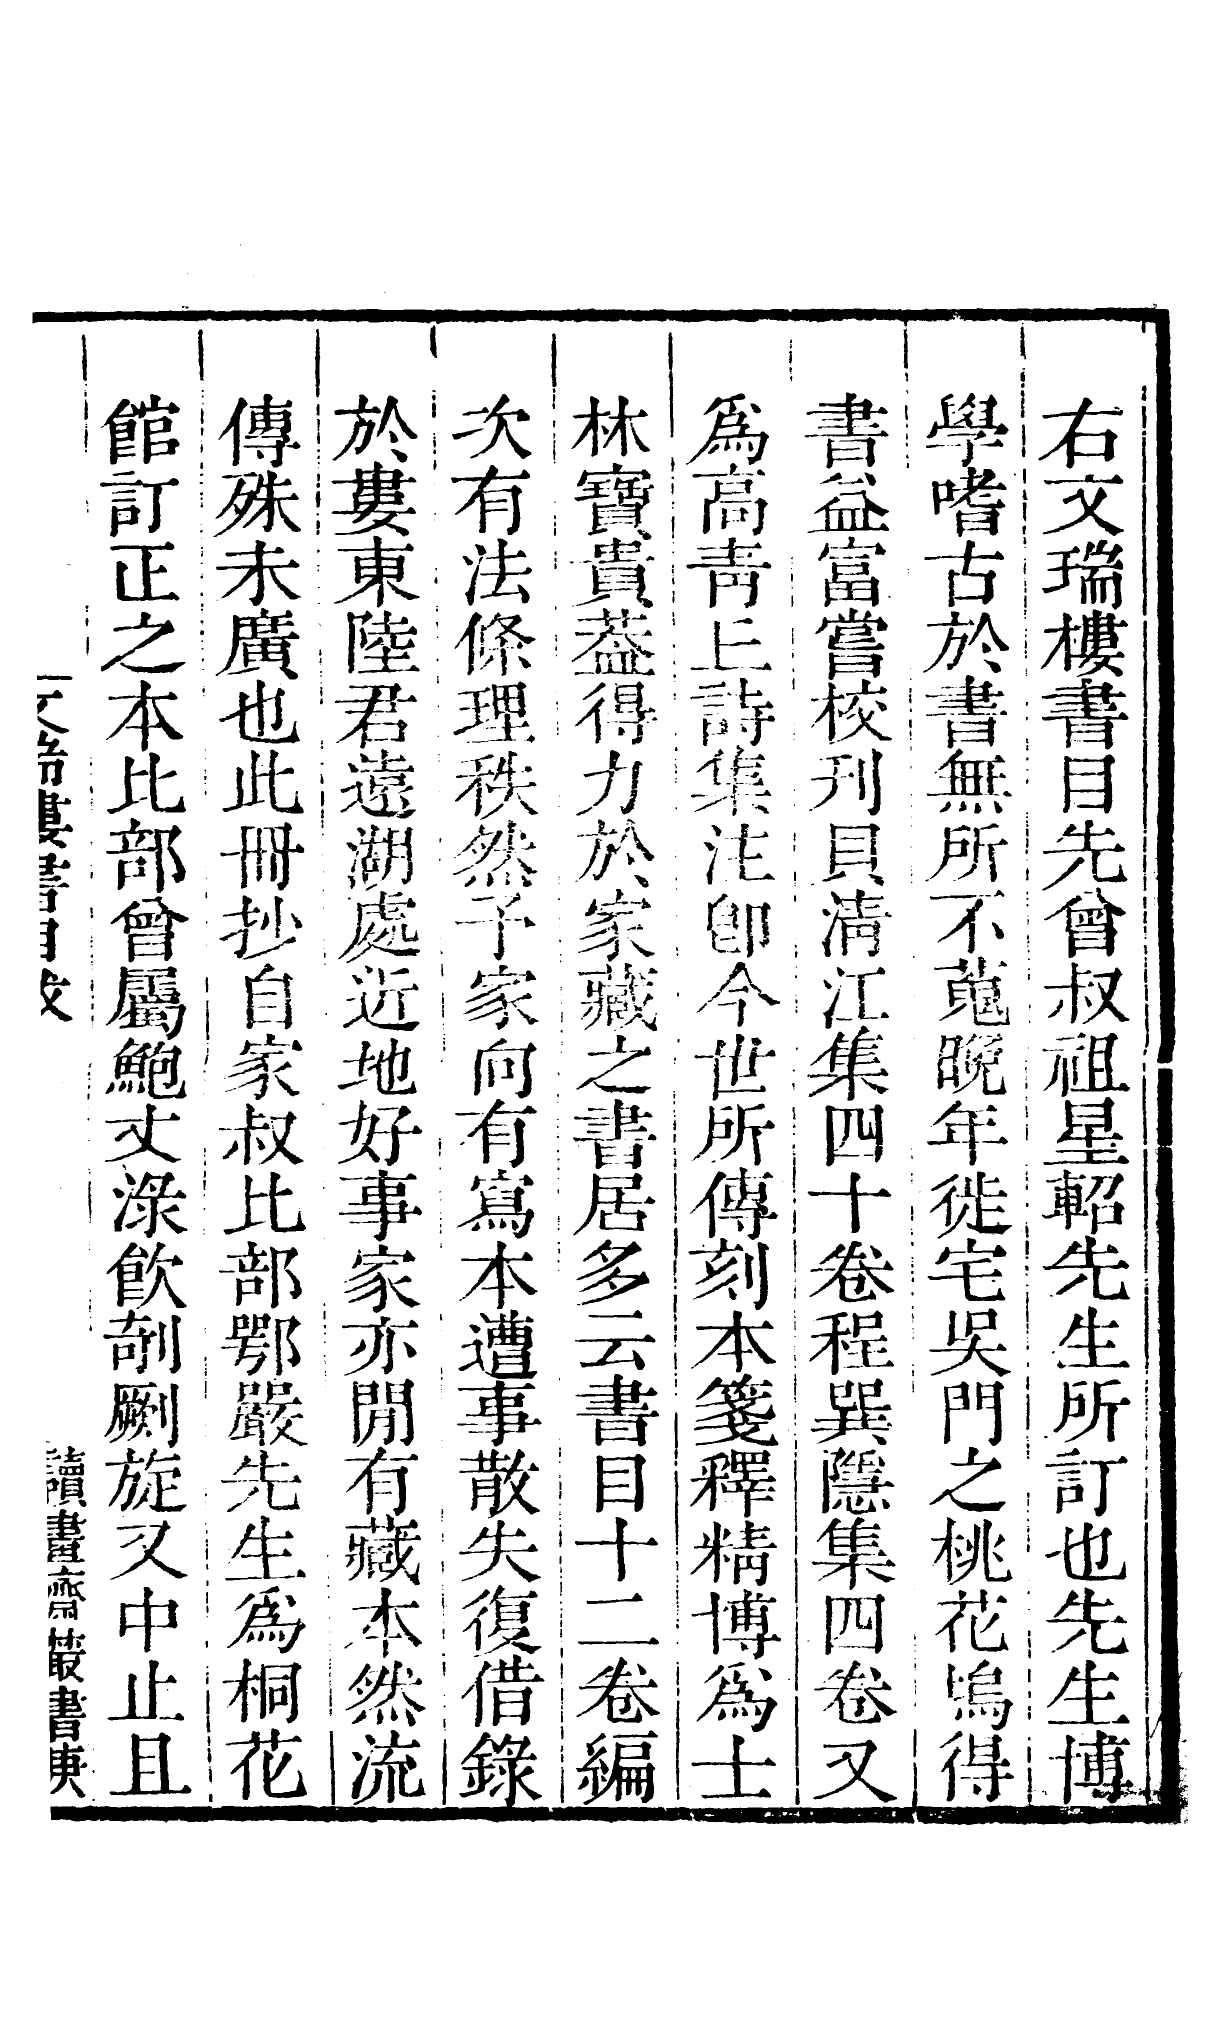 右文瑞樓書目先曾叔祖星軺先生所訂也先生博
學嗜古於書無所不蒐晚年徙宅吳門之桃花塢得
書益富嘗校刊貝清江集四十卷程巽隱集四卷又
爲高靑丘詩集注卽今世所傳刻本箋釋精博爲士
林寶貴葢得力於家藏之書居多云書目十二卷編
次有法條理秩然予家向有寫本遭事散失復借錄
於婁東陸君遠湖處近地好事家亦閒有藏本然流
傳殊未廣也此冊抄自家叔比部鄂巖先生爲桐花
館訂正之本比部曾屬鮑丈淥飮剞劂旋又中止且
文瑞樓書目跋
讀畫齋叢書庚